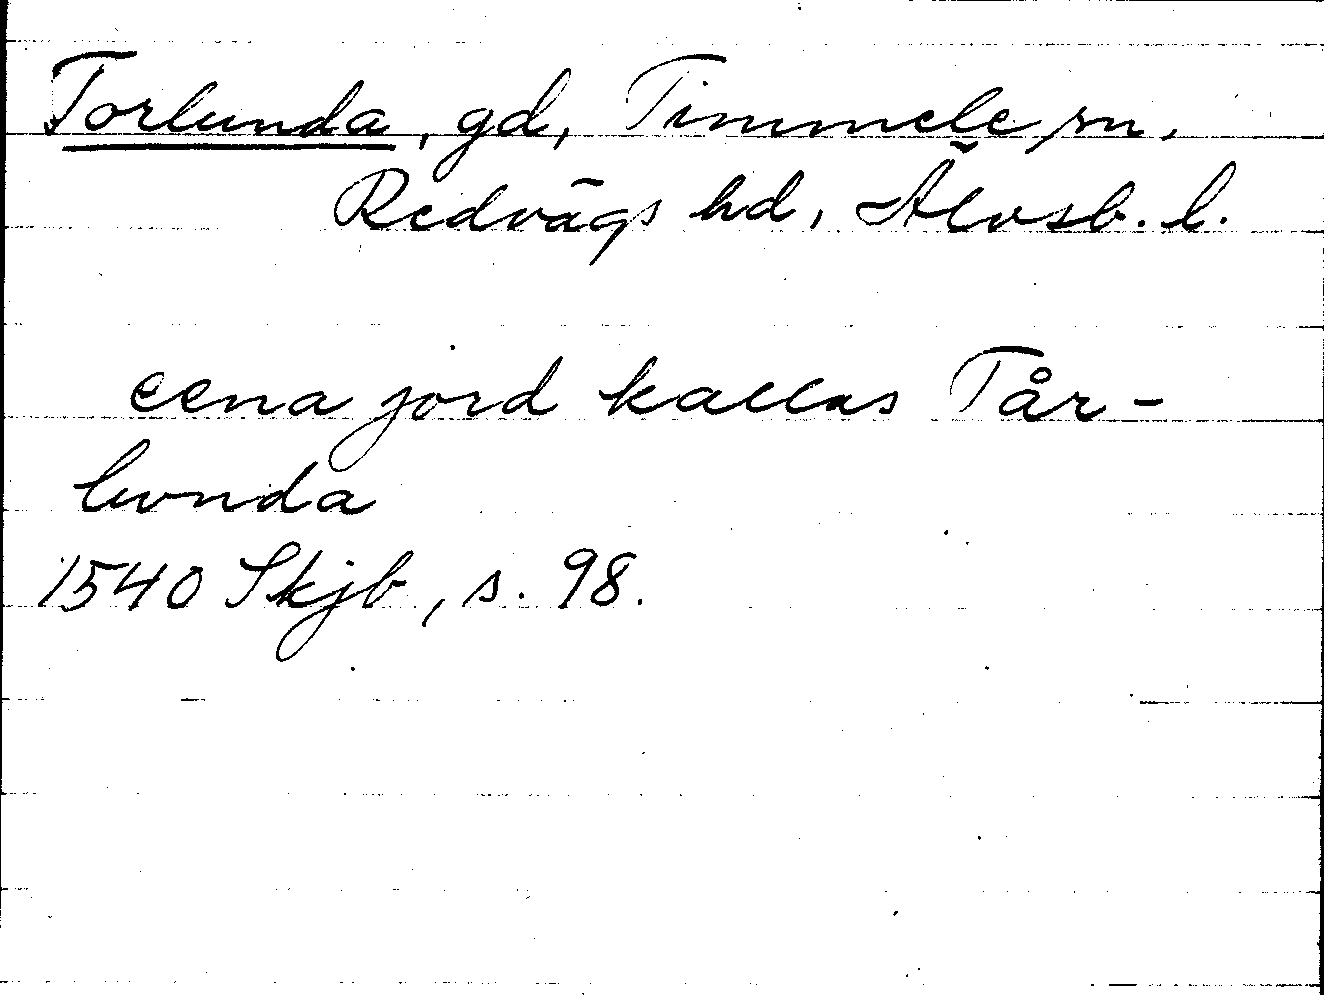 Torlunda, gd, Timmele sn,
Redvägs hd, Älvsb. l.
eena jord kallas Tår-
lunda
1540 Skjb, s. 98.